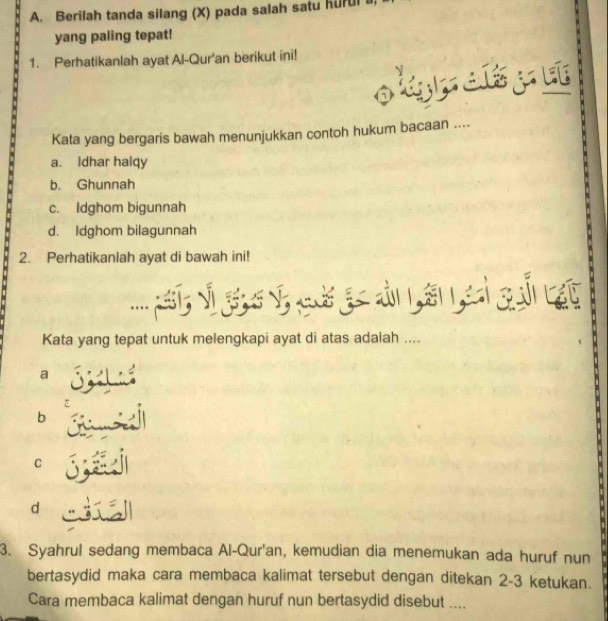 A. Berilah tanda silang (X) pada salah satu huruf a,
yang paling tepat!
1. Perhatikanlah ayat Al-Qur'an berikut ini!
فَأَمَّا مَنْ ثَقُلَتْ مَوَازِينُهُ ۙ ٦
Kata yang bergaris bawah menunjukkan contoh hukum bacaan ....
a. Idhar halqy
b. Ghunnah
c. Idghom bigunnah
d. Idghom bilagunnah
2. Perhatikanlah ayat di bawah ini!
يٰٓاَيُّهَا الَّذِيْنَ اٰمَنُوا اتَّقُوا اللّٰهَ حَقَّ تُقٰىتِهٖ وَلَا تَمُوْتُنَّ اِلَّا وَاَنْتُمْ ....
Kata yang tepat untuk melengkapi ayat di atas adalah ....
a مُسْلِمُوْنَ
b الْمُحْسِنِيْنَ ۚ
c الْمُتَّقُوْنَ
d
3. Syahrul sedang membaca Al-Qur'an, kemudian dia menemukan ada huruf nun
bertasydid maka cara membaca kalimat tersebut dengan ditekan 2-3 ketukan.
Cara membaca kalimat dengan huruf nun bertasydid disebut ....